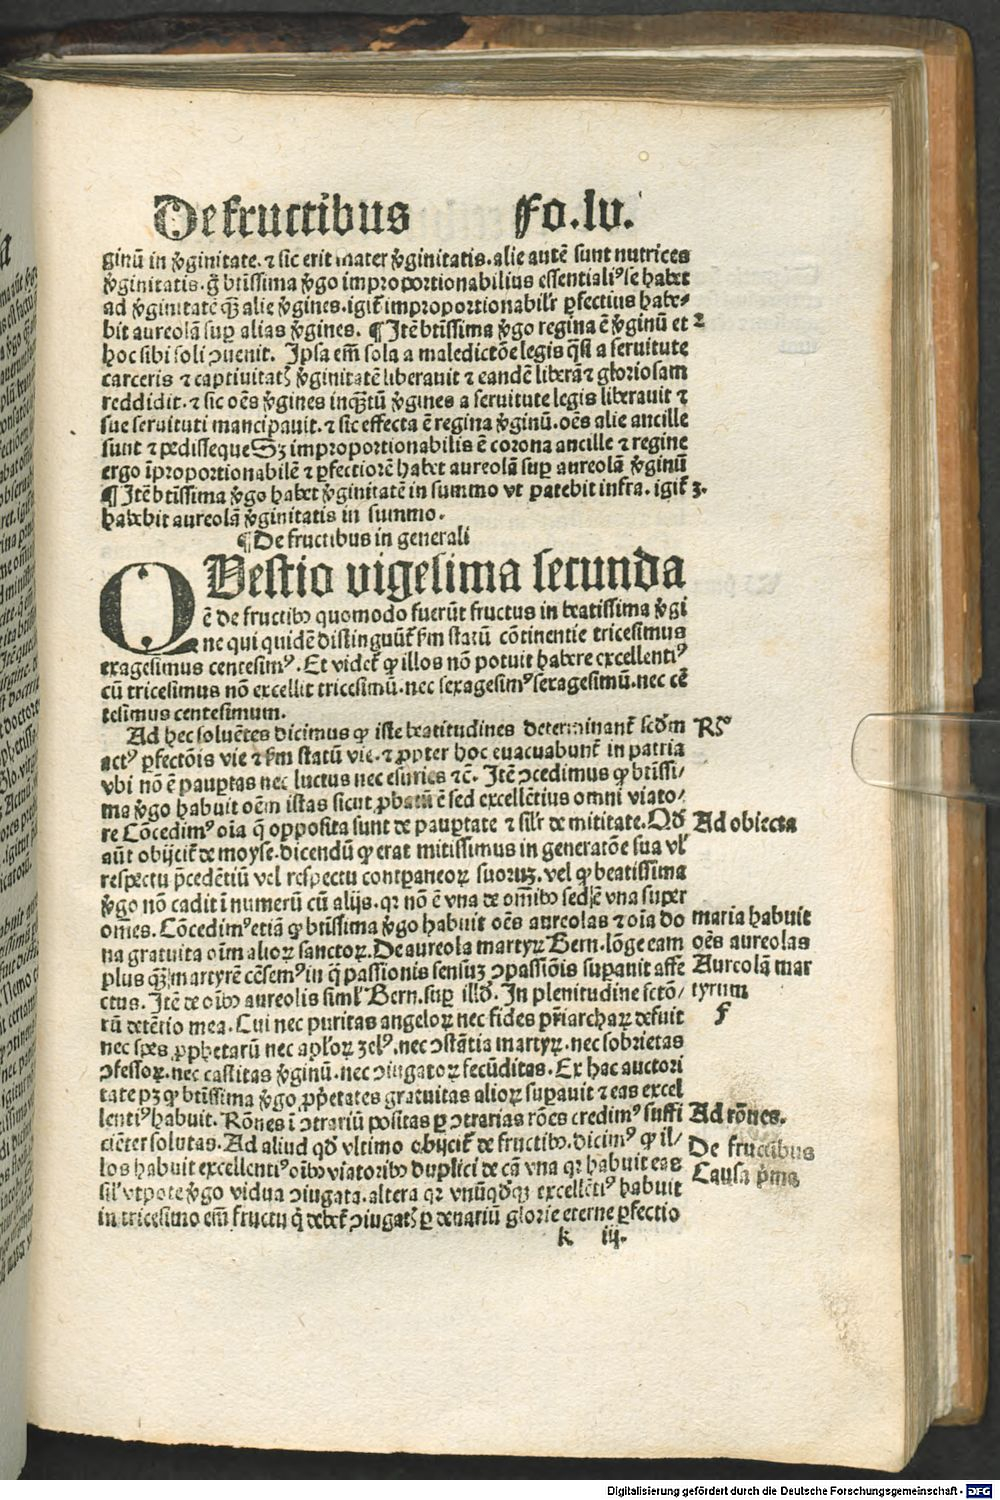 De fructibus Fo.lv.
ginū in v̓ginitate. ⁊ sic erit mater v̓ginitatis. alie autē sunt nutrices
v̓ginitatis. g̊ btissima v̓go improportionabilius essentialiꝰ se habet
ad v̓ginitatē qꝫ̄ alie v̓gines. igit̄ improportionabilr̄ ꝑfectius habe-
bit aureolā suꝑ alias v̓gines. ¶ Itē btissima v̓go regina ē v̓ginū et 2
hoc sibi soli ↄuenit. Ipsa em̄ sola a maledictōe legis q̄si a seruitute
carceris ⁊ captiuitatꝭ v̓ginitatē liberauit ⁊ eandē liberā ⁊ gloriosam
reddidit. ⁊ sic oēs v̓gines inqꝫ̄tū v̓gines a seruitute legis liberauit ⁊
sue seruituti mancipauit. ⁊ sic effecta ē regina v̓ginū. oēs alie ancille
sunt ⁊ pedisseque Sꝫ improportionabilis ē corona ancille ⁊ regine
ergo īproportionabilē ⁊ ꝑfectiorē habet aureolā suꝑ aureolā v̓ginū
¶ Itē btissima v̓go habet v̓ginitatē in summo vt patebit infra. igit̄ 3.
habebit aureolā v̓ginitatis in summo.
¶ De fructibus in generali
QVestio vigesima secunda
ē de fructibꝰ quomodo fuerūt fructus in beatissima v̓gi
ne qui quidē distinguūt̄ ẜm statū cōtinentie tricesimus
exagesimus centesimꝰ. Et videt̄ ꝙ illos nō potuit habere excellentiꝰ
cū tricesimus nō excellit tricesimū. nec sexagesimꝰ sexagesimū. nec cē
tesimus centesimum.
Ad hec soluētes dicimus ꝙ iste beatitudines determinant̄ scd̄m Rñ
actꝰ ꝑfectōis vie ⁊ ẜm statū vie. ⁊ ꝓpter hoc euacuabunt̄ in patria
vbi nō ē pauꝑtas nec luctus nec esuries ⁊c̄. Itē ↄcedimus ꝙ btissi/
ma v̓go habuit oēm istas sicut ꝓbatū ē sed excellētius omni viato/
re Cōcedimꝰ oīa q̄ opposita sunt de pauꝑtate ⁊ silr̄ de mititate. Qd̄ Ad obiecta
aūt obijcit̄ de moyse. dicendū ꝙ erat mitissimus in generatōe sua vl̓
respectu p̄cedētiū vel respectu contꝑaneoꝝ suoꝝ. vel ꝙ beatissima
v̓go nō cadit ī numerū cū alijs. qꝛ nō ē vna de omībꝰ sed ē vna super
omēs. Cōcedimꝰ etiā ꝙ btissima v̓go habuit oēs aureolas ⁊ oīa do maria habuit
na gratuita oīm alioꝝ sanctoꝝ. De aureola martyꝝ Bern. lōge eam oēs aureolas
plus qꝫ̄ martyrē cēsemꝰ in q̄ passionis sensuꝫ ↄpassiōis suꝑauit affe Aureolā mar
ctus. Itē de oībꝰ aureolis siml̓ Bern. suꝑ illd̄. In plenitudine sctō/ tyrum
rū detētio mea. Cui nec puritas angeloꝝ nec fides pr̄iarchaꝝ defuit f
nec spes ꝓphetarū nec apl̓oꝝ zelꝰ. nec ↄstātia martyꝝ. nec sobrietas
ↄfessoꝝ. nec castitas v̓ginū. nec ↄiugatoꝝ fecūditas. Ex hac auctori
tate pꝫ ꝙ btissima v̓go ꝓp̄etates gratuitas alioꝝ suꝑauit ⁊ eas excel
lentiꝰ habuit. Rōnes ī ↄtrariū positas ꝑ ↄtrarias rōes credimꝰ suffi Ad rōnes.
ciēter solutas. Ad aliud qd̄ vltimo obijcit̄ de fructibꝰ. dicimꝰ ꝙ il/ De fructibus
los habuit excellentiꝰ oībꝰ viatoribꝰ duplici de cā vna qꝛ habuit eas Causa p̄ma
sil̓ vtpote v̓go vidua ↄiugata. altera qꝛ vnūqd̓qꝫ excellētiꝰ habuit
in tricesimo em̄ fructu q̇ debet̄ ↄiugatꝭ ꝑ denariū glorie eterne ꝑfectio
k iij.
Digitalisierung gefördert durch die Deutsche Forschungsgemeinschaft - DFG